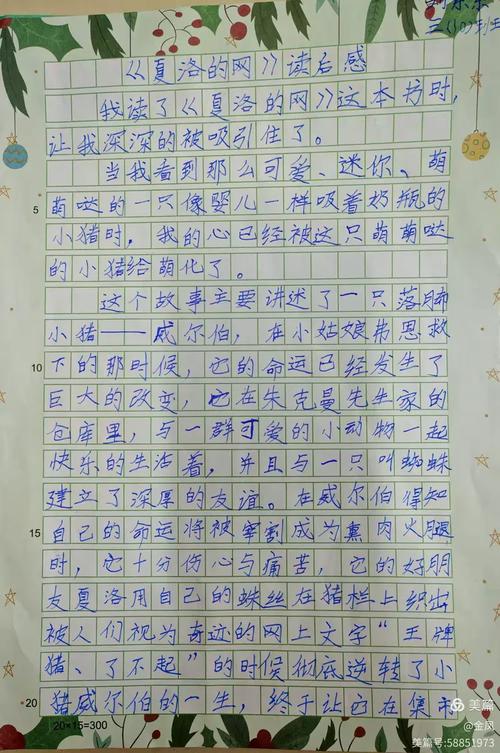 三(10)班
《夏洛的网》读后感
我读了《夏洛的网》这本书时,
让我深深的被吸引住了。
当我看到那么可爱、迷你、萌
5 萌哒的一只像婴儿一样吸着奶瓶的
小猪时,我的心已经被这只萌萌哒
的小猪给萌化了。
这个故事主要讲述了一只落肺
小猪——威尔伯,在小姑娘弗恩救
10 下的那时候,它的命运已经发生了
巨大的改变,它在朱克曼先生家的
仓库里,与一群可爱的小动物一起
快乐的生活着,并且与一只叫蜘蛛
建立了深厚的友谊。在威尔伯得知
15 自己的命运将被宰割成为熏肉火腿
时,它十分伤心与痛苦,它的好朋
友夏洛用自己的蛛丝在猪栏上织出
被人们视为奇迹的网上文字“王牌
猪、了不起”的时候彻底逆转了小
20 猪威尔伯的一生,终于让它在集市
20×15=300
美篇
@金凤
美篇号:58851973